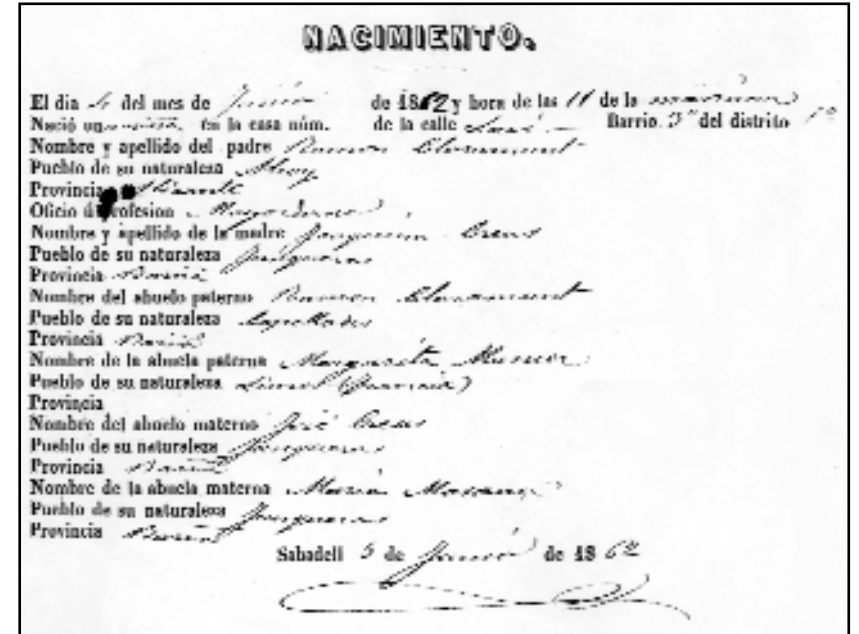 NACIMIENTO.
El dia 4 del mes de Junio de 1862 y hora de las 11 de la mañana
Nació una niña en la casa núm. de la calle Barrio 3º del distrito 1º
Nombre y apellido del padre Ramon Claramunt
Pueblo de su naturaleza Alcoy
Provincia Alicante
Oficio ú profesion Mayordomo
Nombre y apellido de la madre Joaquina Creus
Pueblo de su naturaleza Junqueras
Provincia Barna
Nombre del abuelo paterno Ramon Claramunt
Pueblo de su naturaleza Capellades
Provincia Barna
Nombre de la abuela paterna Margarita
Pueblo de su naturaleza (Francia)
Provincia
Nombre del abuelo materno José Creus
Pueblo de su naturaleza Junqueras
Provincia Barna
Nombre de la abuela materna Maria
Pueblo de su naturaleza Junqueras
Provincia Barna
Sabadell 5 de Junio de 1862